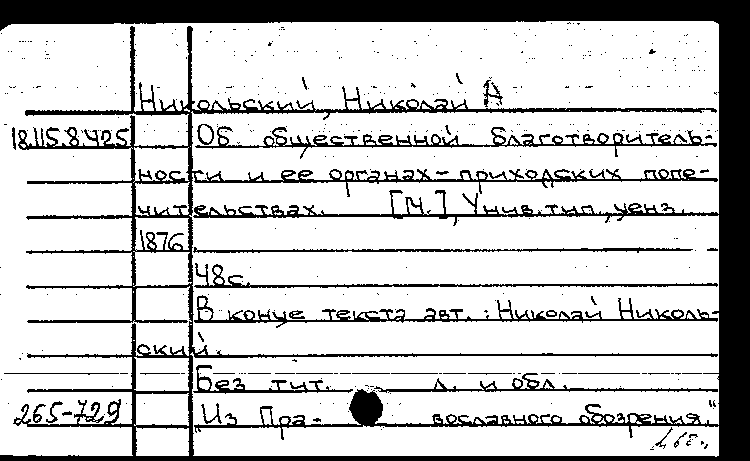 Никольский, Николай А
18.115.8.425 Об общественной благотворитель-
ности и ее органах - приходских попе-
чительствах. [М.], Унив. тип., ценз.
1876.
48с.
В конце текста авт.: Николай Николь-
ский.
Без тит. л. и обл.
265-729 "Из Пра- вославного обозрения."